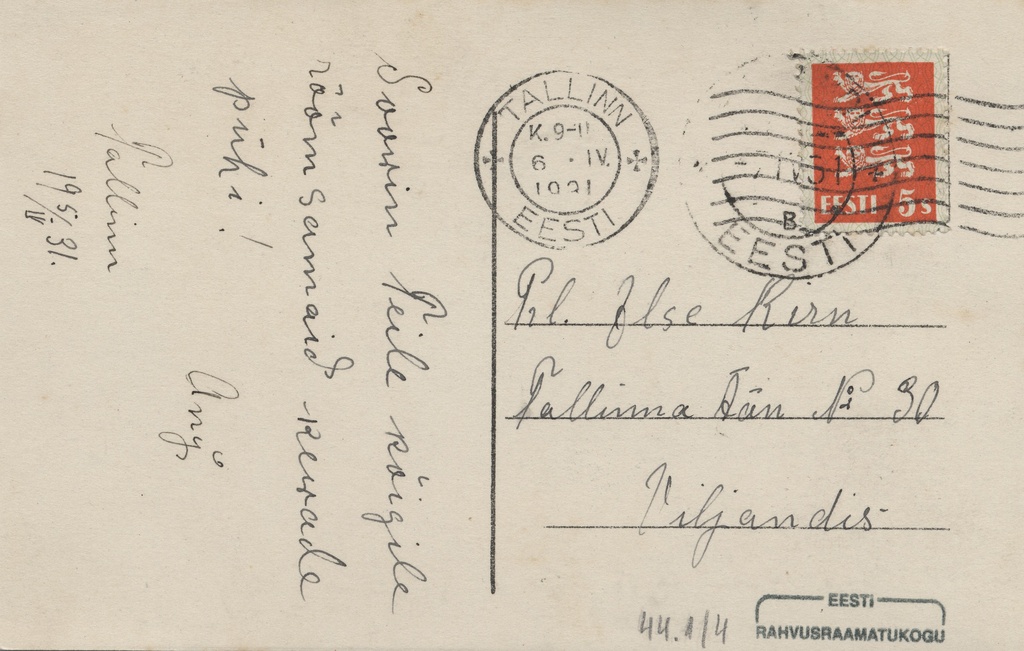 Soowin Teile kõigile
rõõmsamaid kewade
pühi!
Tallinn
19 5/IV. 31.
TALLINN
K. 9-11
6 . IV.
1931
EESTI
B
EESTI
EESTI 5 S
Prl. Ilse Kirn
Tallinna tän № 30
Viljandis
44.1/4
EESTI
RAHVUSRAAMATUKOGU